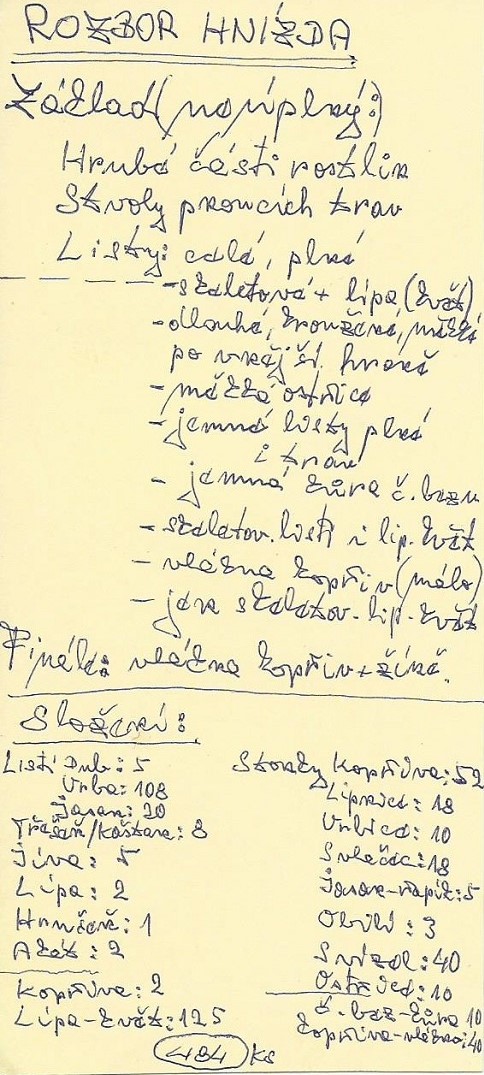 ROZBOR HNÍZDA
Základ (neúplný:)
Hrubé části rostlin
Stvoly pnoucích trav
Listy: celé, plné
- skeletová + lípa (květ)
- dlouhá, kroužená, měkká
po vnější hraně
- měkká ostřice
- jemné listy plné
i trav
- jemná kůra č. bezu
- skeletov. listí i lip. květ
- vlákna kopřiv (málo)
- jen skeletov. lip. květ
Finále: vlákna kopřiv + žíně.
Složení:
Listí Dub: 5
Vrba: 108
Jasan: 20
Třešeň/Kaštan: 8
Jíva: 5
Lípa: 2
Hrušeň: 1
Akát: 2
Kopřiva: 2
Lípa-květ: 125
Stonky Kopřiva: 52
Lipnice: 18
Vrbice: 10
Svlačec: 18
Jasan-řapík: 5
Obilí: 3
Svízel: 40
Ostřice: 10
č. bez-kůra 10
Kopřiva-vlákno: 40
484 ks